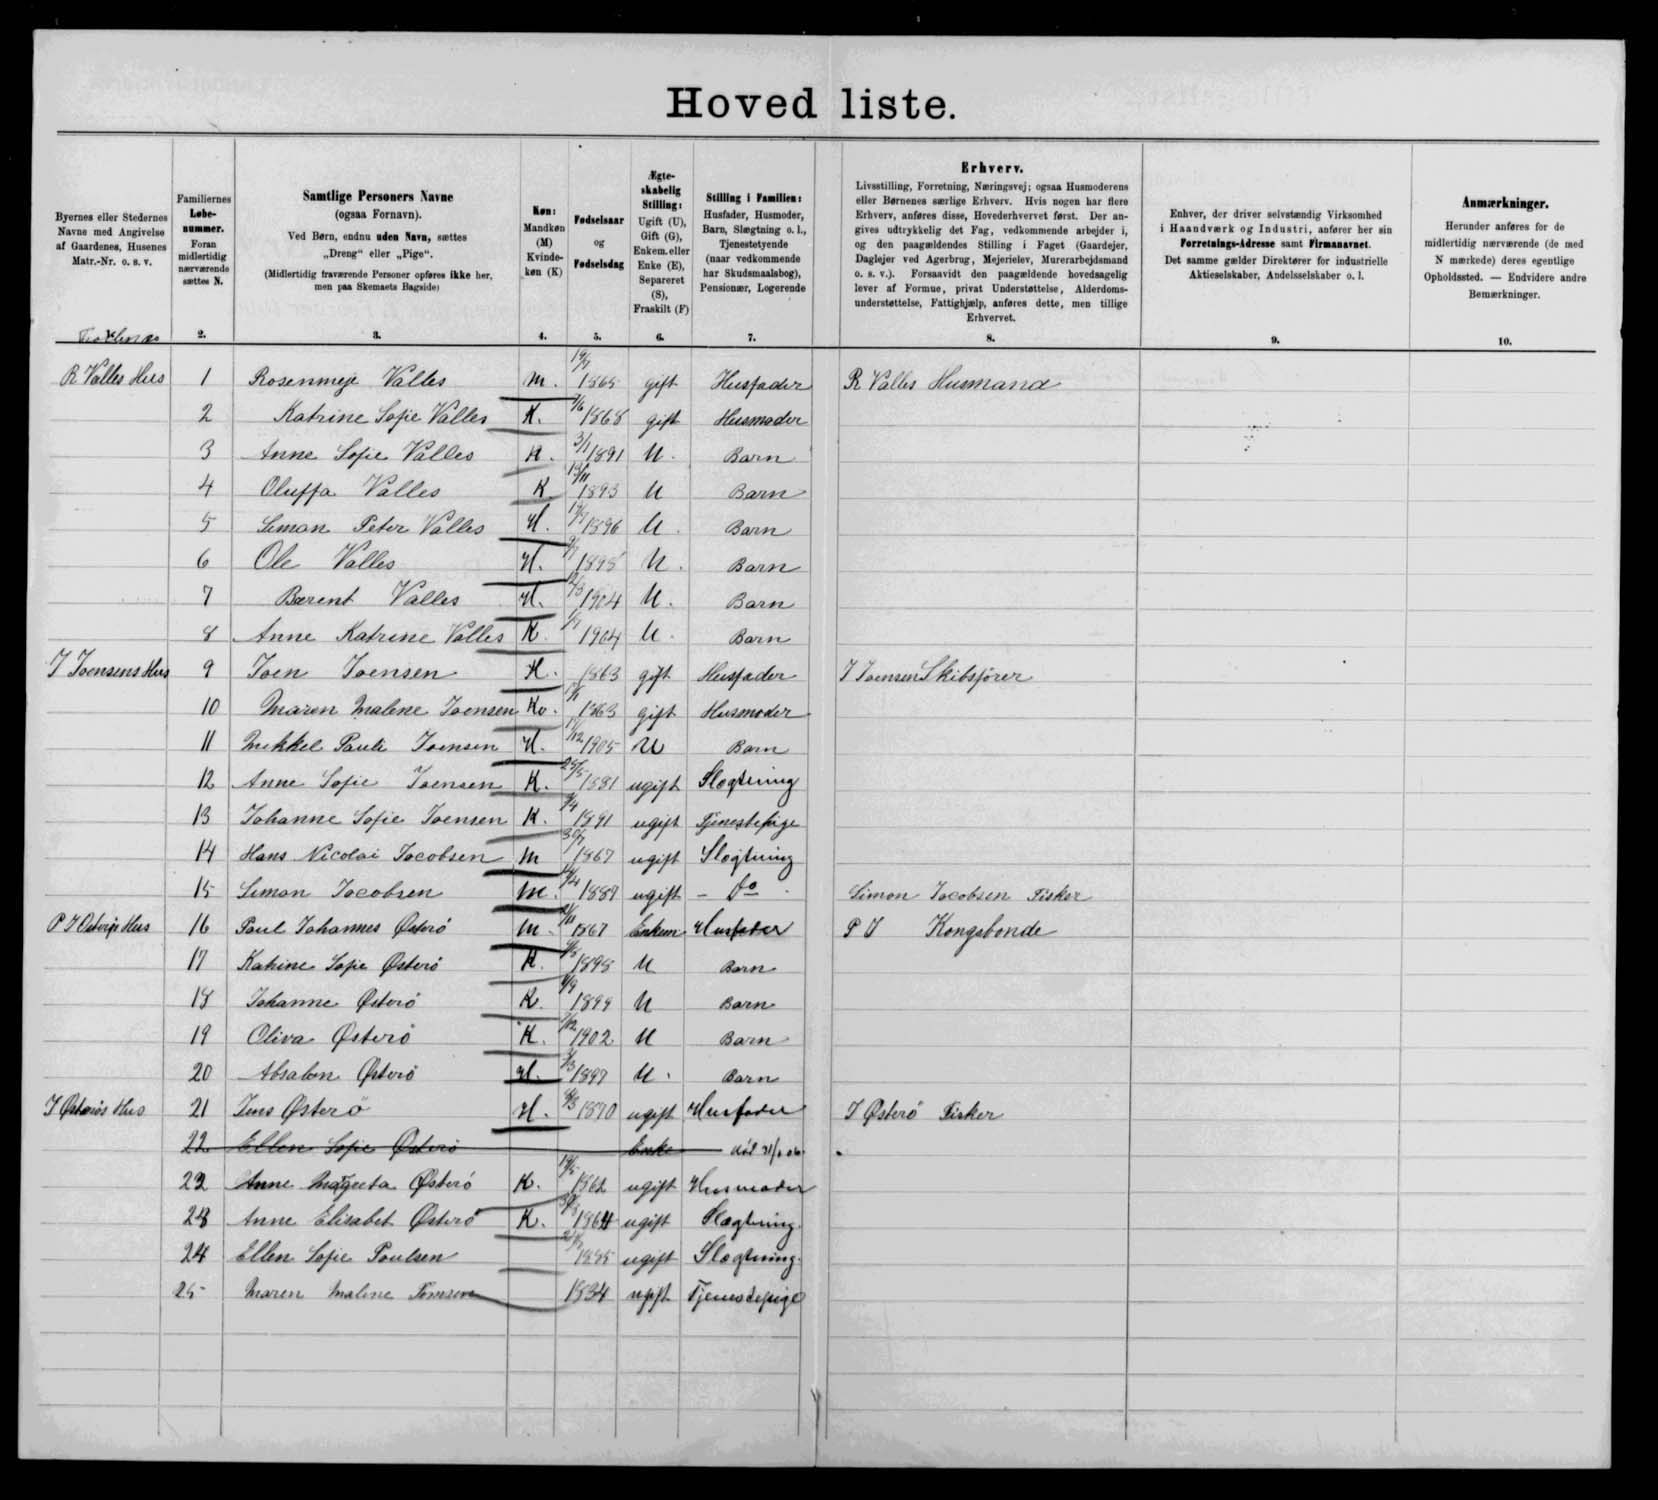 Hoved liste.
Byernes eller Stedernes Navne med Angivelse af Gaardenes, Husenes Matr.-Nr. o. s. v.
Familiernes Løbenummer. Foran midlertidig nærværende sættes N.
Samtlige Personers Navne
(ogsaa Fornavn).
Ved Børn, endnu uden Navn, sættes „Dreng“ eller „Pige“.
(Midlertidig fraværende Personer opføres ikke her, men paa Skemaets Bagside)
Køn: Mandkøn (M) Kvindekøn (K)
Fødselsaar og Fødselsdag
Ægteskabelig Stilling: Ugift (U), Gift (G), Enkem. eller Enke (E), Separeret (S), Fraskilt (F)
Stilling i Familien: Husfader, Husmoder, Barn, Slægtning o. l., Tjenestetyende (naar vedkommende har Skudsmaalsbog), Pensionær, Logerende
Erhverv.
Livsstilling, Forretning, Næringsvej; ogsaa Husmoderens eller Børnenes særlige Erhverv. Hvis nogen har flere Erhverv, anføres disse, Hovederhvervet først. Der angives udtrykkelig det Fag, vedkommende arbejder i, og den paagældendes Stilling i Faget (Gaardejer, Daglejer ved Agerbrug, Mejerielev, Murerarbejdsmand o. s. v.). Forsaavidt den paagældende hovedsagelig lever af Formue, privat Understøttelse, Alderdomsunderstøttelse, Fattighjælp, anføres dette, men tillige Erhvervet.
Enhver, der driver selvstændig Virksomhed i Haandværk og Industri, anfører her sin Forretnings-Adresse samt Firmanavnet. Det samme gælder Direktører for industrielle Aktieselskaber, Andelsselskaber o. l.
Anmærkninger.
Herunder anføres for de midlertidig nærværende (de med N mærkede) deres egentlige Opholdssted. — Endvidere andre Bemærkninger.
2. 3. 4. 5. 6. 7. 8. 9. 10.
R Valles Hus 1 Rosenmeje Valles M. 1865 gift Husfader R Valles Husmand
2 Katrine Sofie Valles K. 1868 gift Husmoder
3 Anne Sofie Valles K. 3/1 1891 U. Barn
4 Oluffa Valles K 1893 U Barn
5 Simon Peter Valles M. 1896 U. Barn
6 Ole Valles M. 1898 U. Barn
7 Barent Valles M. 1904 U. Barn
8 Anne Katrine Valles K. 1904 U. Barn
J Joensens Hus 9 Joen Joensen M. 1863 gift Husfader J Joensen Skibsfører
10 Maren Malene Joensen Kv. 1863 gift Husmoder
11 Mikkel Pauli Joensen M. 1905 U Barn
12 Anne Sofie Joensen K. 1881 ugift Slægtning
13 Johanne Sofie Joensen K. 1891 ugift Tjenestepige
14 Hans Nicolai Jacobsen M 1867 ugift Slægtning
15 Simon Jacobsen M. 1889 ugift – do. Simon Jacobsen Fisker
P J Østerøs Hus 16 Paul Johannes Østerö M. 1867 Enkem Husfader P J Kongsbonde
17 Katrine Sofie Østerö K. 1895 U Barn
18 Johanne Østerö K. 1899 U Barn
19 Oliva Østerö K. 1902 U Barn
20 Absalon Østerö M. 1897 U. Barn
J Østerös Hus 21 Jens Østerö M. 1870 ugift Husfader J Østerö Fisker
22 Ellen Sofie Østerö Enke
22 Anne Østerö K. ugift Husmoder
23 Anne Elisabet Østerö K. 1864 ugift Slægtning
24 Ellen Sofie Poulsen ugift Slægtning.
25 Maren Malene 1834 ugift Tjenestepige